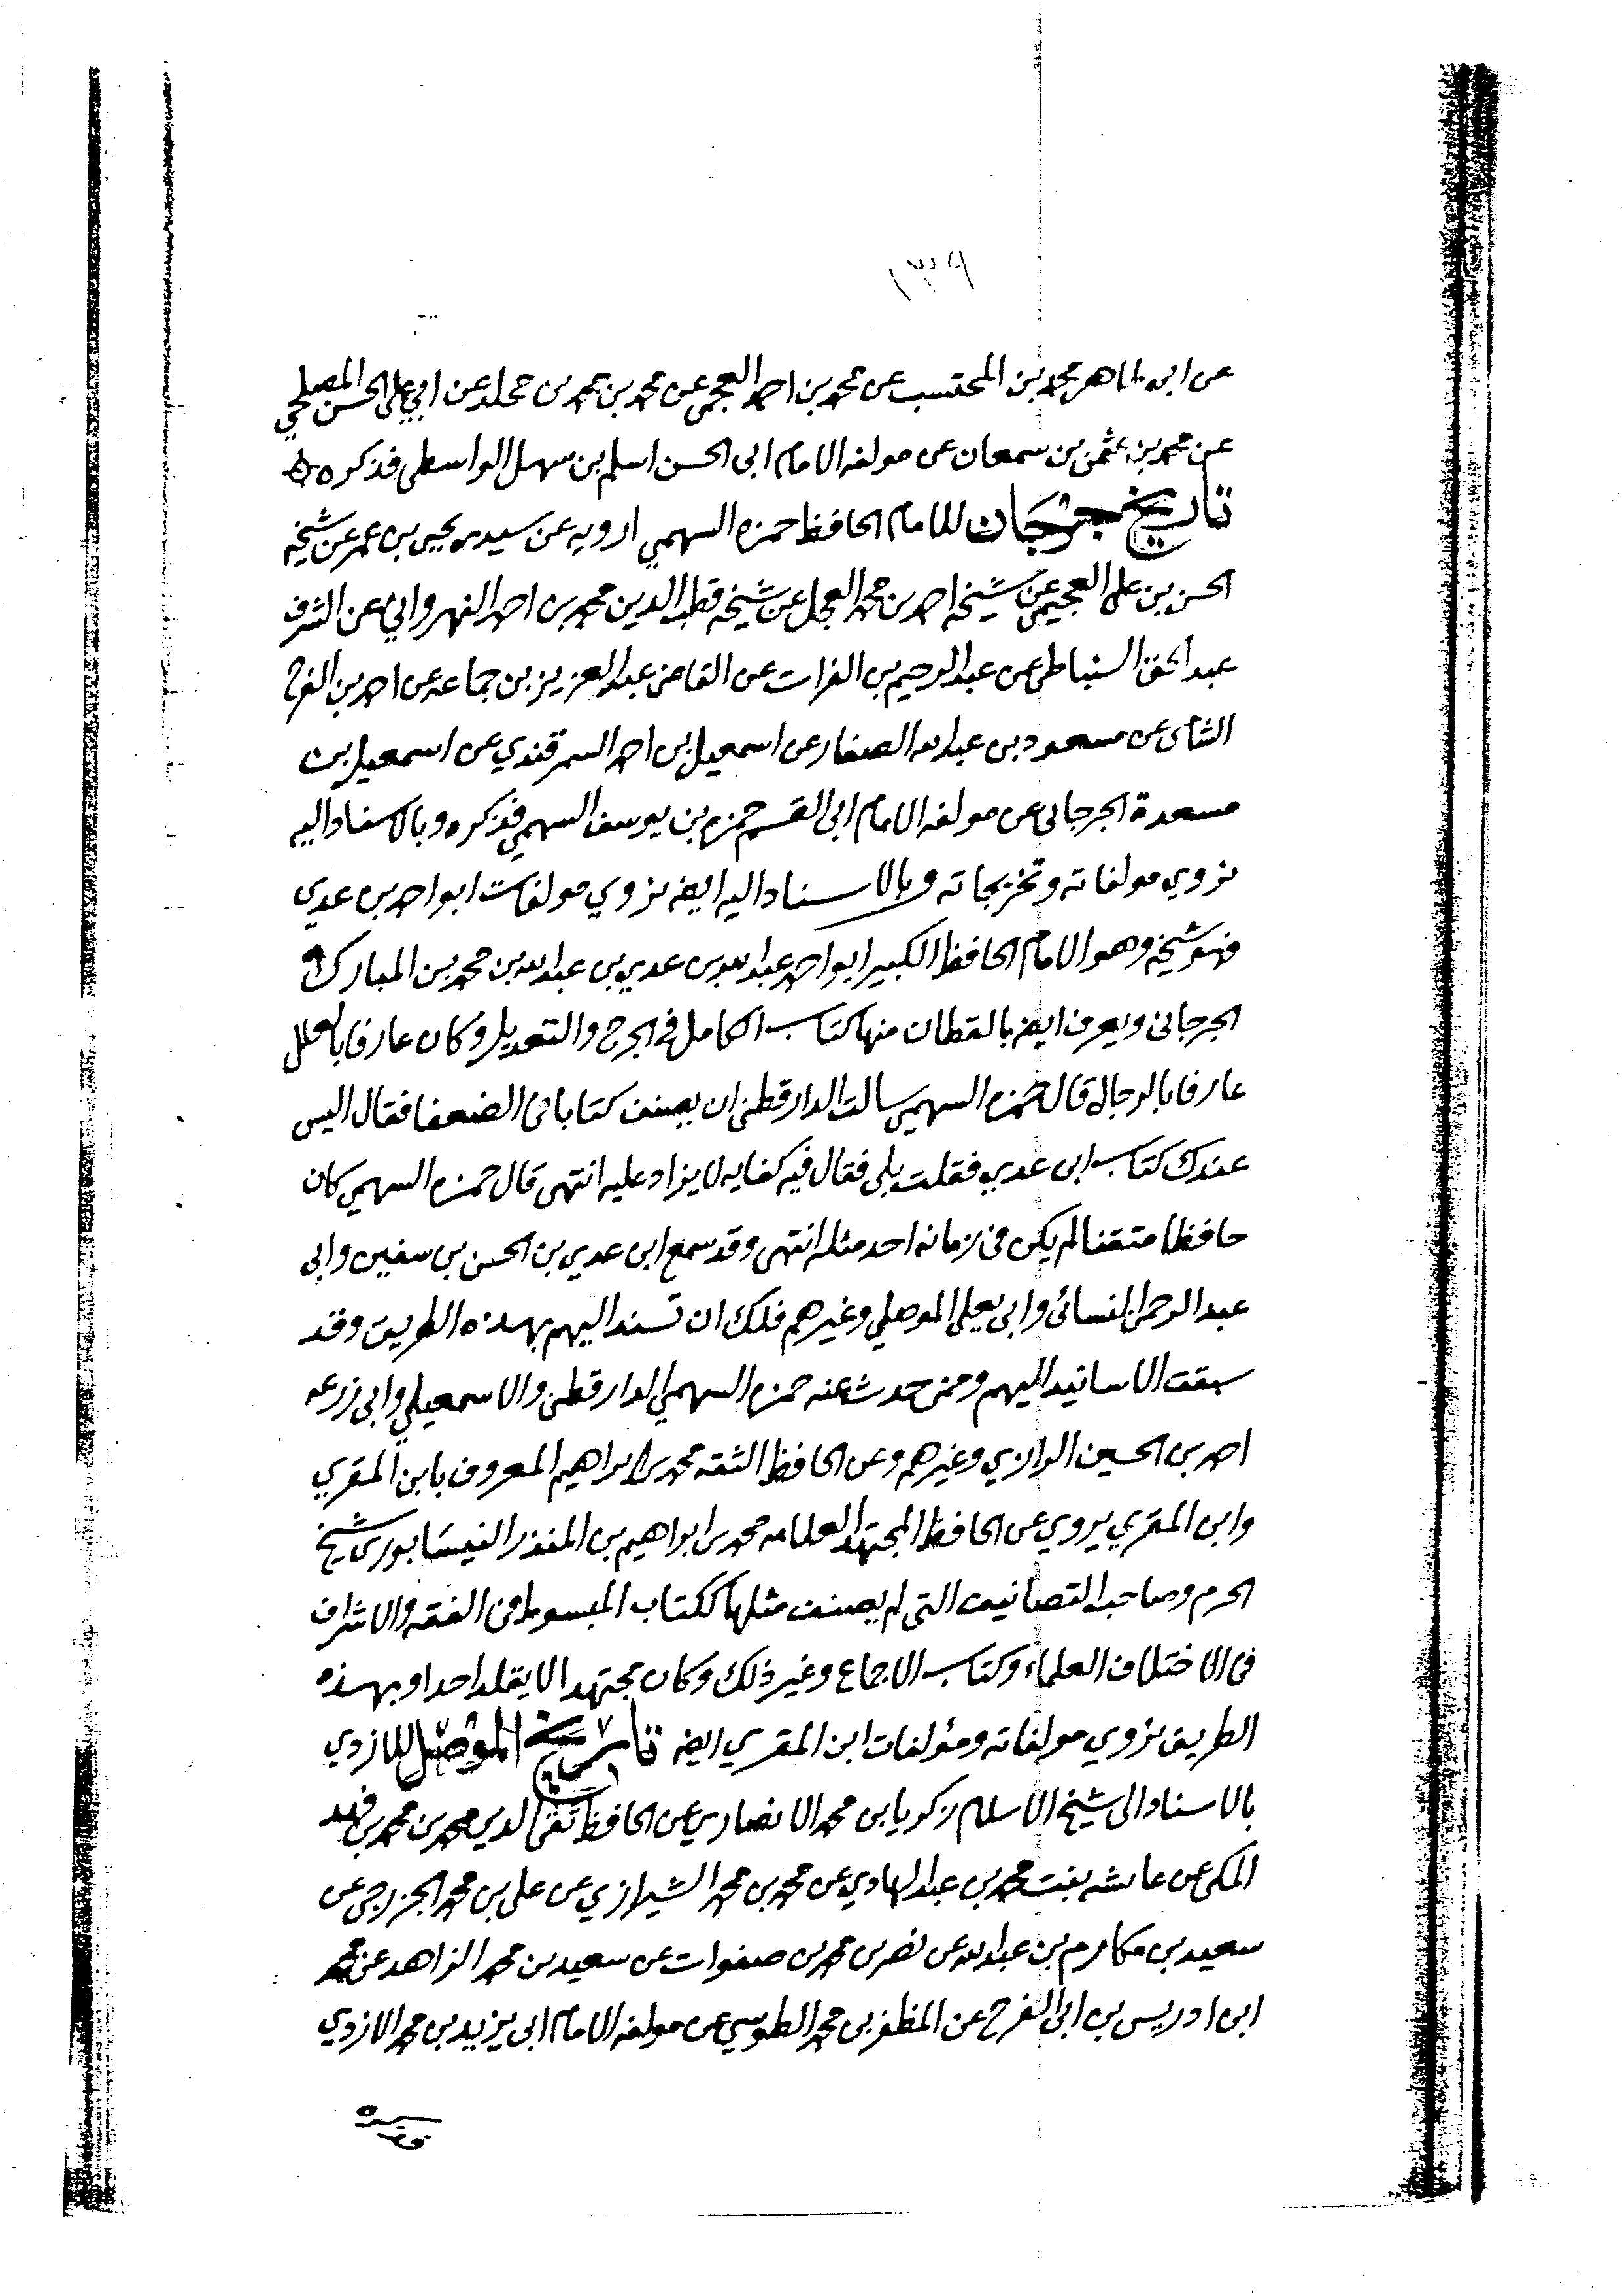 ١٣٩
عن ابي طاهر محمد بن المحتسب عن محمد بن احمد العجمي عن محمد بن محمد بن مخلد عن ابي علي الحسن
عن محمد بن عثمن بن سمعان عن مولفه الامام ابي الحسن اسلم بن سهل الواسطي فذكره
تاريخ جرجان للامام الحافظ حمزه السهمي ارويه عن سيدي يحيى بن عمر عن شيخه
الحسن بن علي العجيمي عن شيخه احمد بن محمد العجل عن شيخه قطب الدين محمد بن احمد النهرواني عن الشرف
عبد الحق السنباطي عن عبد الرحيم بن الفرات عن القاضي عبد العزيز بن جماعه عن احمد بن
عن مسعود بن عبد الله الصفار عن اسمعيل بن احمد السمرقندي عن اسمعيل بن
مسعدة الجرجاني عن مولفه الامام ابي القسم حمزه بن يوسف السهمي فذكره وبالاسناد اليه
نروي مولفاته وتخريجاته وبالاسناد اليه ايضه نروي مولفات ابو احمد بن عدي
فهو شيخه وهو الامام الحافظ الكبير ابو احمد عبد الله بن عدي بن عبد الله بن محمد بن المبارك
الجرجاني ويعرف ايضه بالقطان منها كتاب الكامل في الجرح والتعديل وكان عارفا بالعلل
عارفا بالرجال قال حمزه السهمي سالت الدارقطني ان يصنف كتابا في الضعفا فقال اليس
عندك كتاب ابن عدي فقلت بلى فقال فيه كفايه لا يزاد عليه انتهى قال حمزه السهمي كان
حافظا متقنا لم يكن في زمانه احد مثله انتهى وقد سمع ابن عدي بن الحسن بن سفين وابي
عبد الرحمن النسائي وابي يعلى الموصلي وغيرهم فلك ان تسند اليهم بهذه الطريق وقد
سبقت الاسانيد اليهم وممن حدث عنه حمزه السهمي الدارقطني والاسمعيلي وابي زرعه
احمد بن الحسين الرازي وغيرهم وعن الحافظ الثقه محمد بن ابراهيم المعروف بابن المقري
وابن المقري يروي عن الحافظ المجتهد العلامه محمد بن ابراهيم بن المنذر النيسابوري شيخ
الحرم وصاحب التصانيف التي لم يصنف مثلها ككتاب المبسوط في الفقه والاشراف
في الاختلاف العلماء وكتاب الاجماع وغير ذلك وكان مجتهدا لا يقلد احدا وبهذه
الطريق نروي مولفاته ومؤلفات ابن المقري ايضه تاريخ الموصل للازدي
بالاسناد الى شيخ الاسلام زكريا بن محمد الانصاري عن الحافظ تقي الدين محمد بن محمد بن فهد
المكي عن عايشه بنت محمد بن عبد الهادي عن محمد بن محمد الشيرازي عن علي بن محمد الجزري عن
سعيد بن مكارم بن عبد الله عن نصر بن محمد بن صفوات عن سعيد بن محمد الزاهد عن محمد
ابن ادريس بن ابي الفرج عن المظفر بن محمد الطوسي عن مولفه الامام ابي يزيد بن محمد الازدي